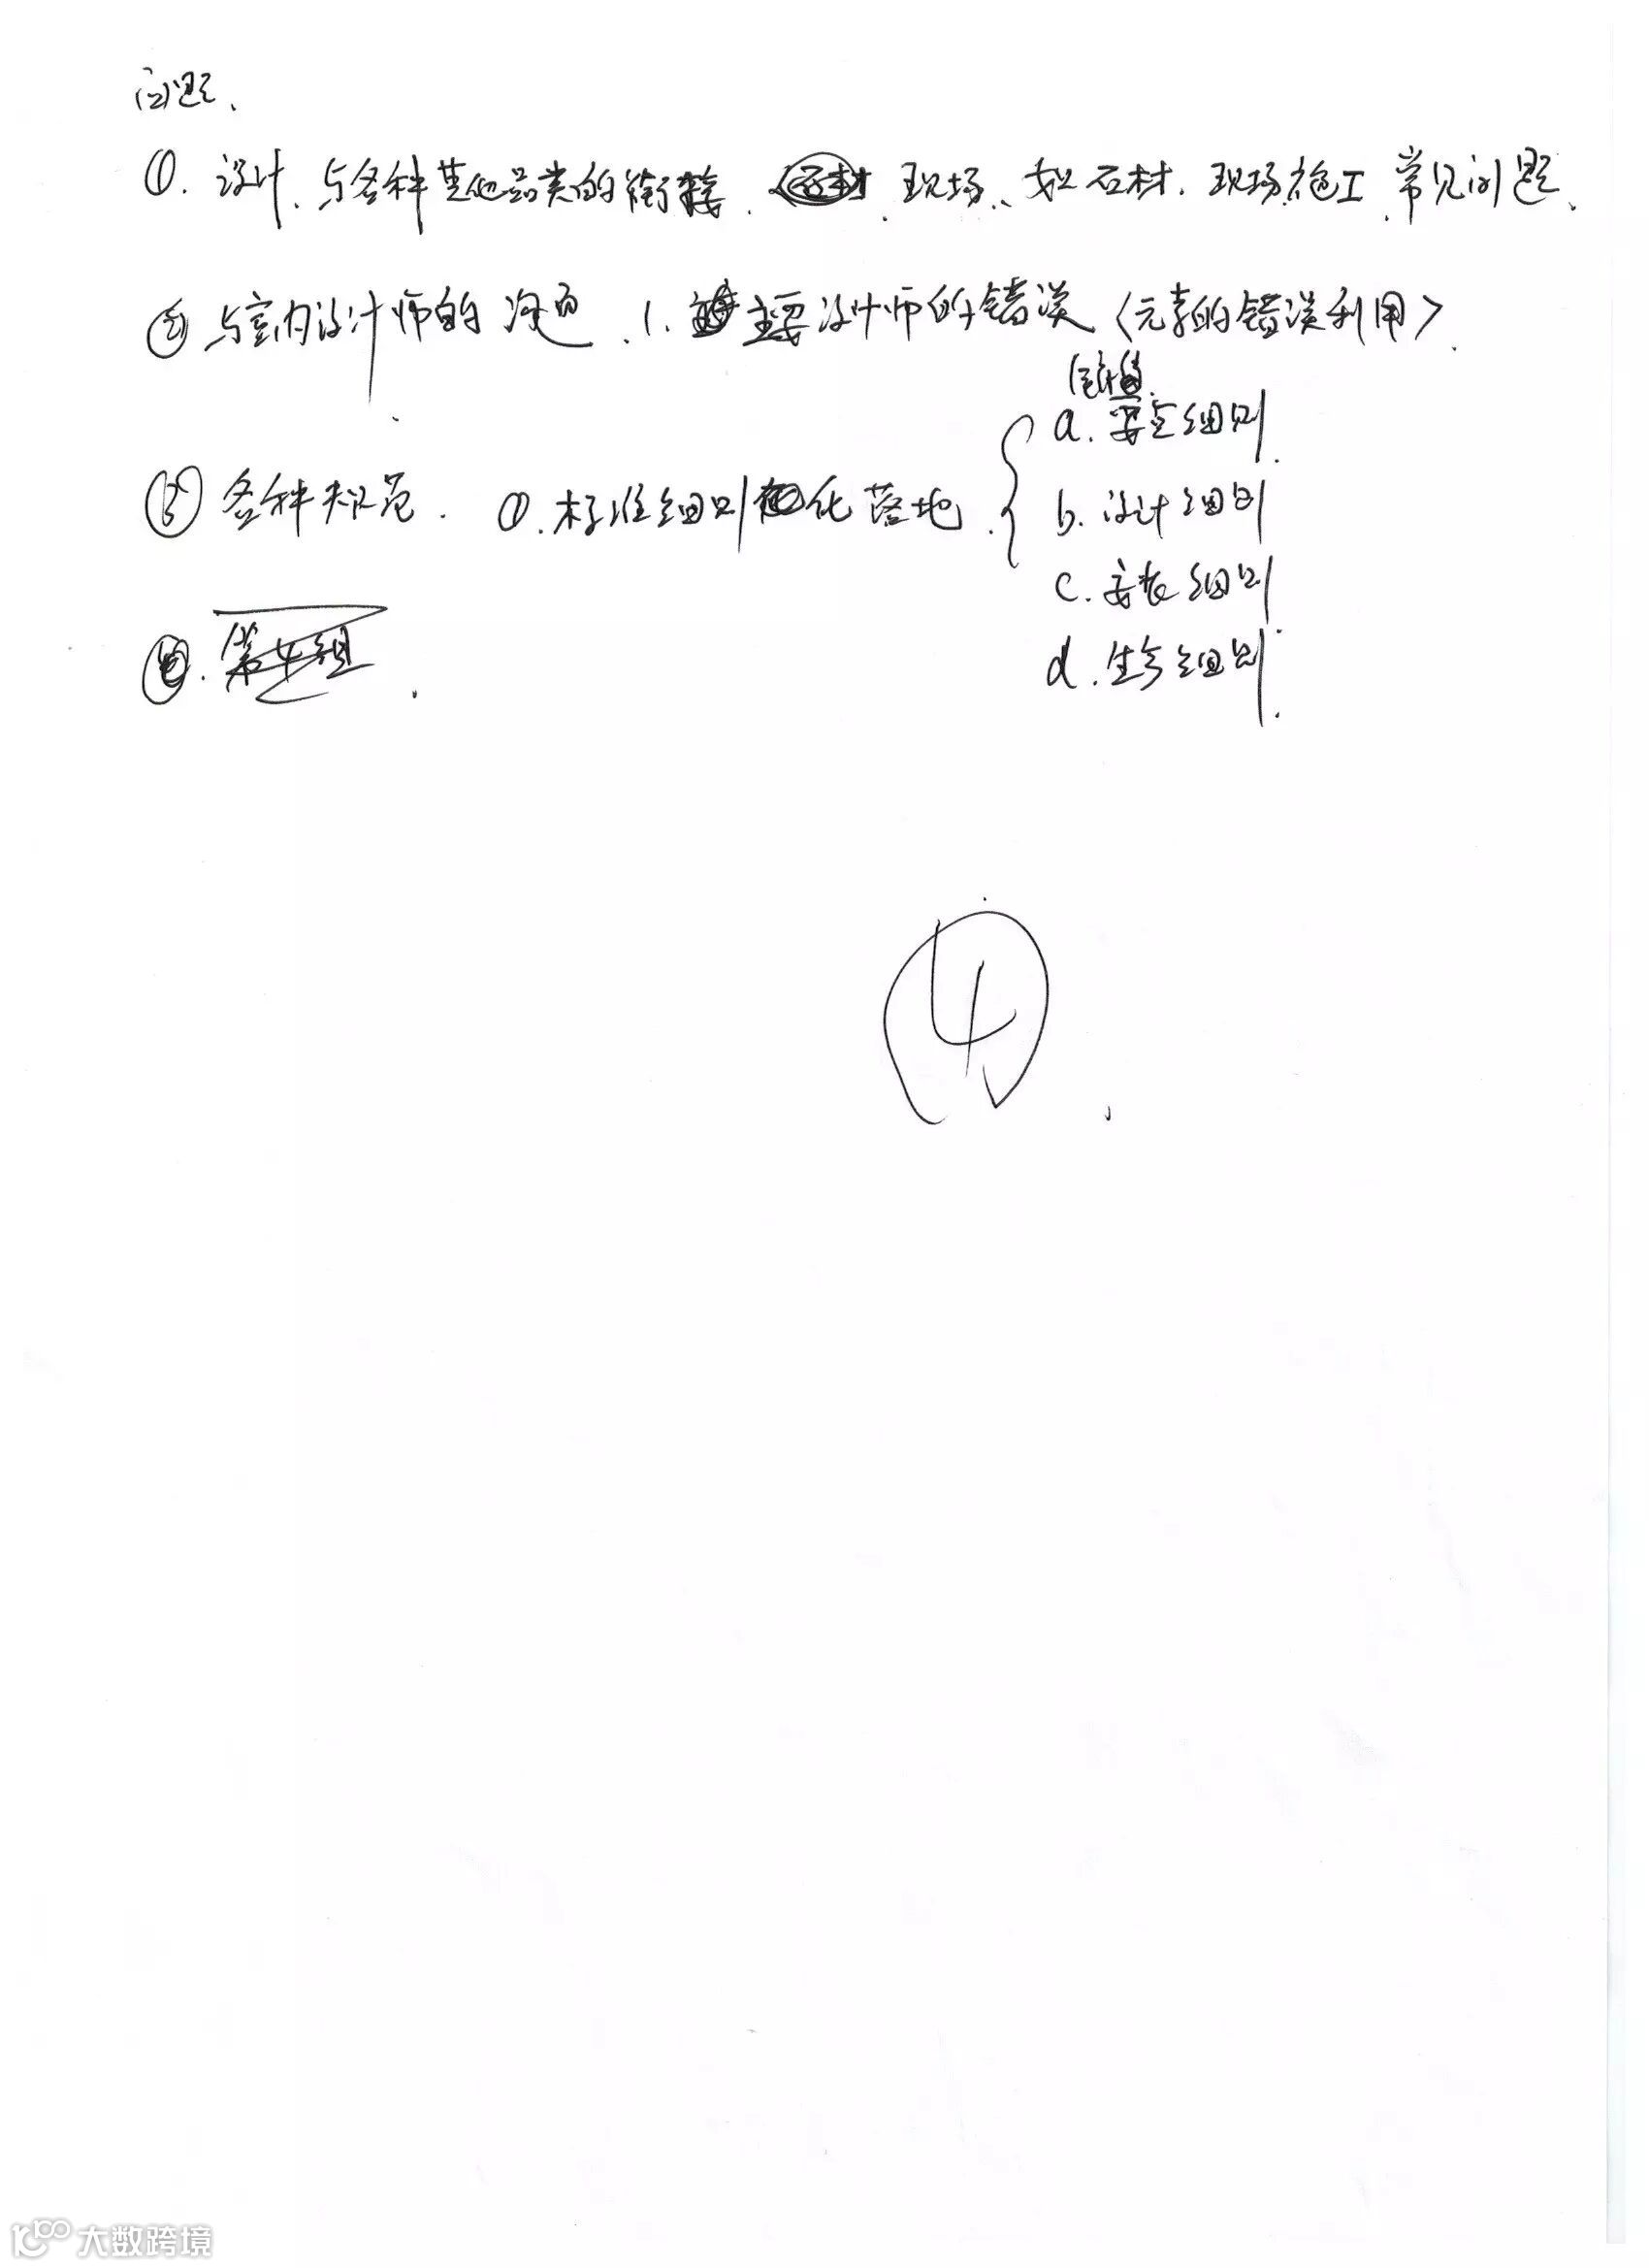 问题、
①. 设计、与各种其他品类的衔接. 现场、如石材. 现场施工.常见问题、
② 与室内设计师的沟通. 1. 主要设计师的错误〈元素的错误利用〉.
③ 各种规范. ①.标准细则化落地.
a. 细则
b. 设计细则
c. 安装细则
d. 生产细则.
第4组.
④
大数跨境